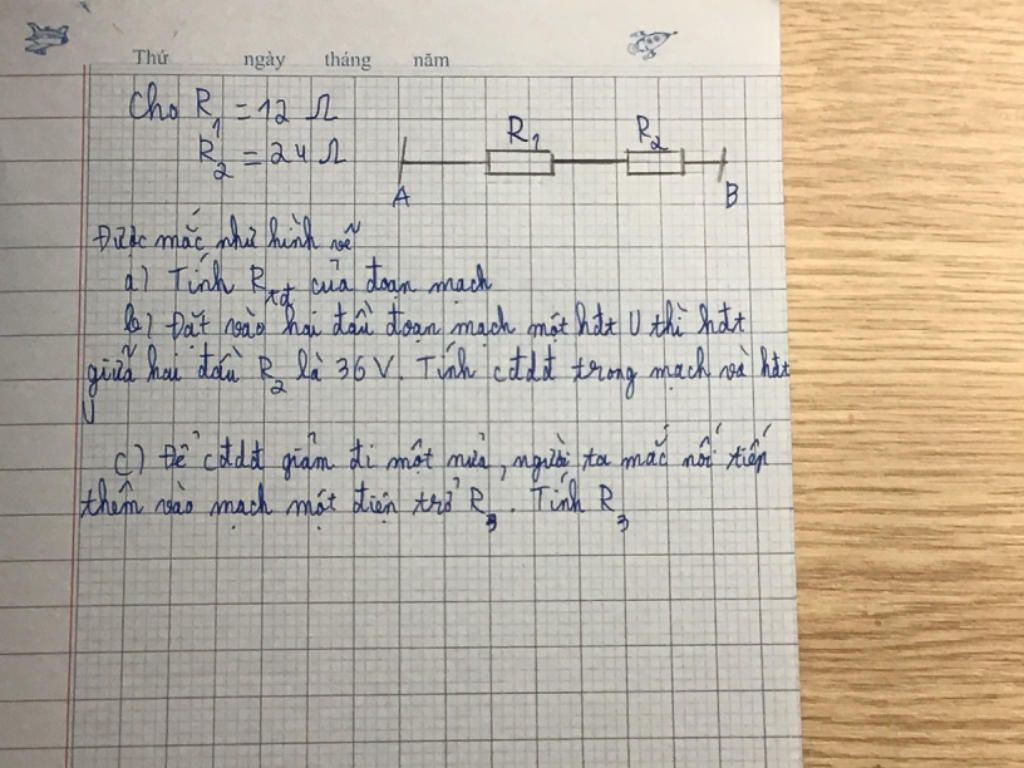 Thứ ngày tháng năm
Cho R₁ = 12 Ω
R₂ = 24 Ω
R₁ R₂
A B
Được mắc như hình vẽ
a) Tính Rtđ của đoạn mạch
b) Đặt vào hai đầu đoạn mạch một hđt U thì hđt
giữa hai đầu R₂ là 36 V. Tính cđdđ trong mạch và hđt
U
c) Để cđdđ giảm đi một nửa, người ta mắc nối tiếp
thêm vào mạch một điện trở R₃. Tính R₃